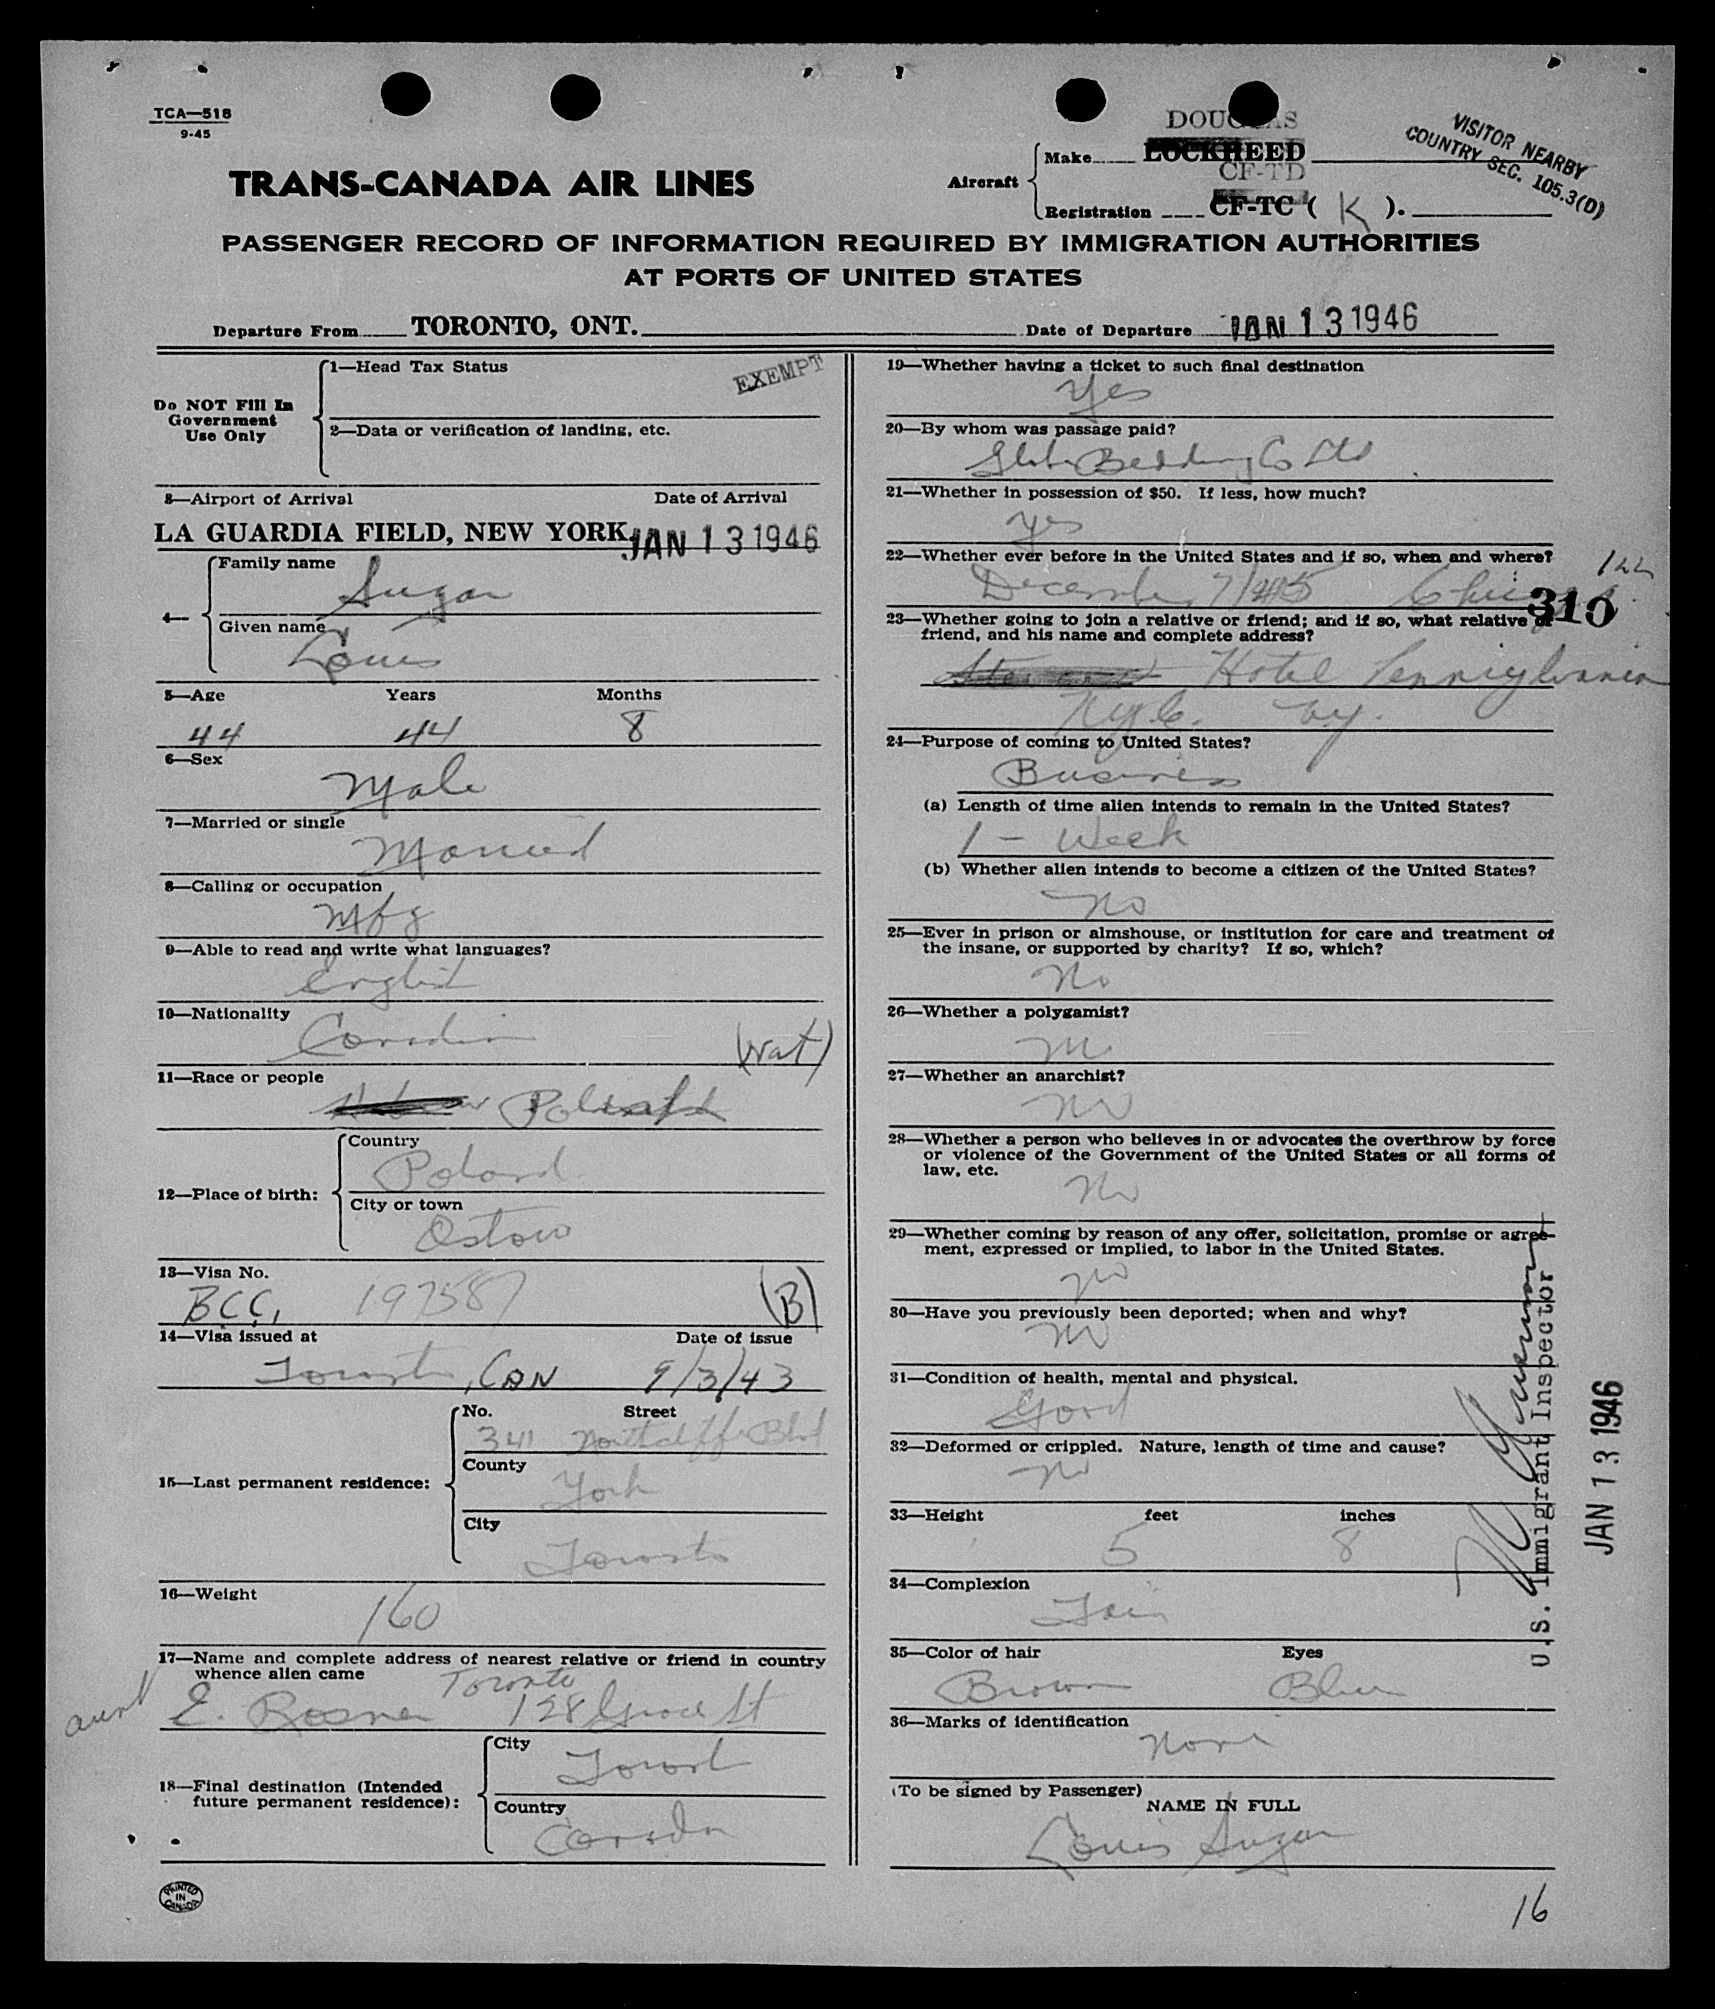 TCA—518
9-45
TRANS-CANADA AIR LINES
Aircraft
DOUGLAS
Make LOCKHEED
CF-TD
Registration CF-TC ( K ).
VISITOR NEARBY
COUNTRY SEC. 105.3(D)
PASSENGER RECORD OF INFORMATION REQUIRED BY IMMIGRATION AUTHORITIES
AT PORTS OF UNITED STATES
Departure From TORONTO, ONT. Date of Departure JAN 13 1946
Do NOT Fill In
Government
Use Only
1—Head Tax Status EXEMPT
2—Data or verification of landing, etc.
3—Airport of Arrival Date of Arrival
LA GUARDIA FIELD, NEW YORK. JAN 13 1946
4—
Family name
Sugar
Given name
Louis
5—Age Years Months
44 44 8
6—Sex
Male
7—Married or single
Married
8—Calling or occupation
Mfg
9—Able to read and write what languages?
English
10—Nationality
Canadian (nat)
11—Race or people
Hebrew Polish
12—Place of birth:
Country
Poland
City or town
Ostow
13—Visa No.
BCC, 197587 (B)
14—Visa issued at Date of issue
Toronto, CAN 9/3/43
15—Last permanent residence:
No. Street
341 Northcliffe Blvd
County
York
City
Toronto
16—Weight
160
17—Name and complete address of nearest relative or friend in country
whence alien came
Toronto
aunt E. Rosner 128 Grace St
18—Final destination (Intended
future permanent residence):
City
Toront
Country
Canada
PRINTED
IN
CANADA
19—Whether having a ticket to such final destination
Yes
20—By whom was passage paid?
Globe Bedding Co Ltd
21—Whether in possession of $50. If less, how much?
Yes
22—Whether ever before in the United States and if so, when and where?
December 7/45
310
23—Whether going to join a relative or friend; and if so, what relative or
friend, and his name and complete address?
Hotel Pennsylvania
NYC. NY.
24—Purpose of coming to United States?
Business
(a) Length of time alien intends to remain in the United States?
1 - Week
(b) Whether alien intends to become a citizen of the United States?
No
25—Ever in prison or almshouse, or institution for care and treatment of
the insane, or supported by charity? If so, which?
No
26—Whether a polygamist?
No
27—Whether an anarchist?
No
28—Whether a person who believes in or advocates the overthrow by force
or violence of the Government of the United States or all forms of
law, etc.
No
29—Whether coming by reason of any offer, solicitation, promise or agree-
ment, expressed or implied, to labor in the United States.
No
30—Have you previously been deported; when and why?
No
31—Condition of health, mental and physical.
Good
32—Deformed or crippled. Nature, length of time and cause?
No
33—Height feet inches
5 8
34—Complexion
Fair
35—Color of hair Eyes
Brown Blue
36—Marks of identification
None
(To be signed by Passenger)
NAME IN FULL
Louis Sugar
U.S. Immigrant Inspector
JAN 13 1946
16